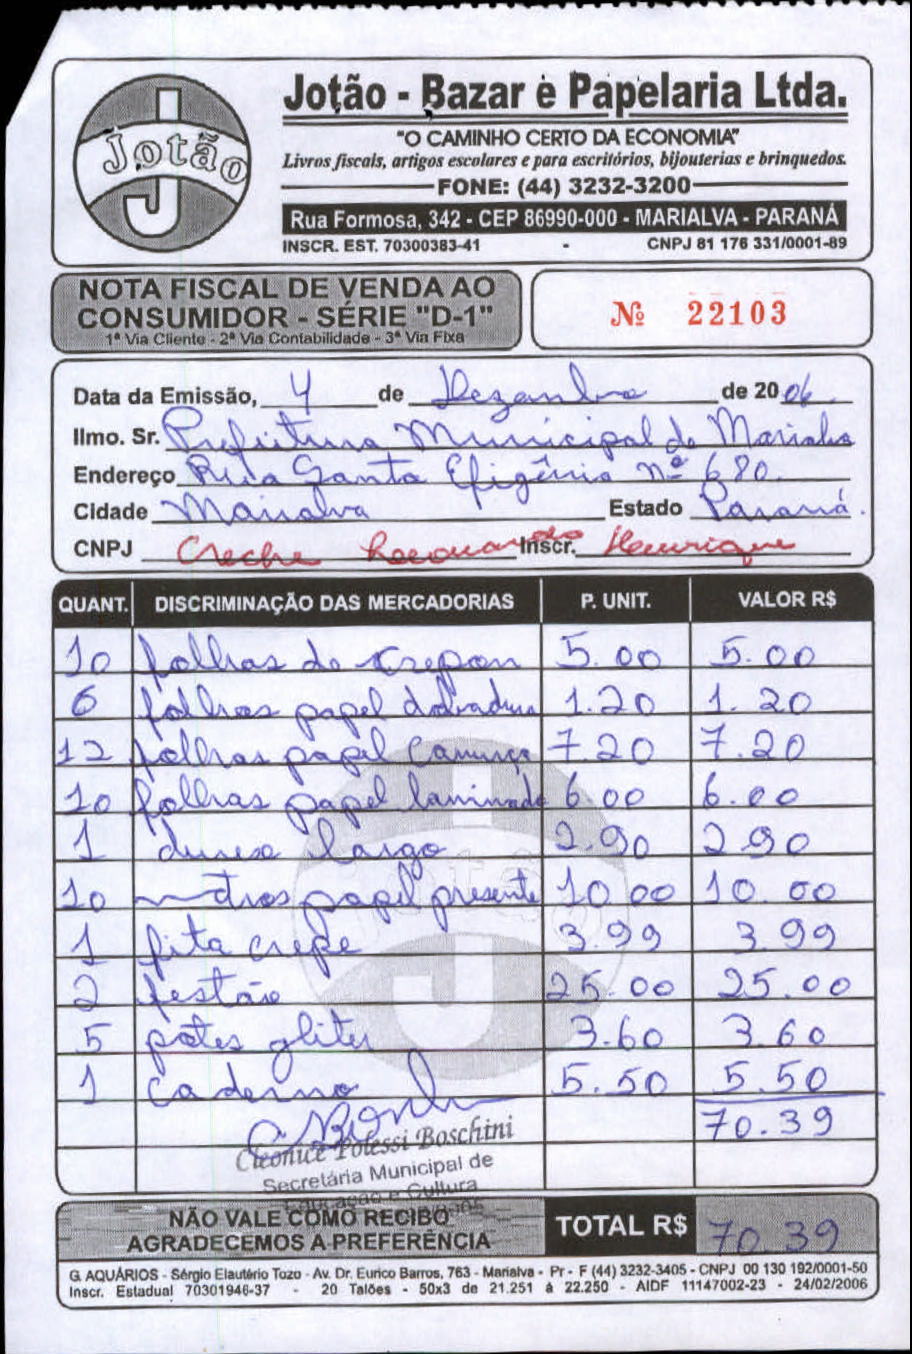 Jotão
Jotão - Bazar e Papelaria Ltda.
"O CAMINHO CERTO DA ECONOMIA"
Livros fiscais, artigos escolares e para escritórios, bijouterias e brinquedos.
FONE: (44) 3232-3200
Rua Formosa, 342 - CEP 86990-000 - MARIALVA - PARANÁ
INSCR. EST. 70300383-41 - CNPJ 81 176 331/0001-89
NOTA FISCAL DE VENDA AO
CONSUMIDOR - SÉRIE "D-1"
1ª Via Cliente - 2ª Via Contabilidade - 3ª Via Fixa
Nº 22103
Data da Emissão, 4 de Dezembro de 2006
Ilmo. Sr. Prefeitura Municipal de Marialva
Endereço Rua Santa Efigênia nº 680
Cidade Marialva Estado Paraná.
CNPJ Creche Inscr. Henrique
QUANT. DISCRIMINAÇÃO DAS MERCADORIAS P. UNIT. VALOR R$
10 folhas de crepon 5.00 5.00
6 folhas papel dobradura 1.20 1.20
12 folhas papel camurça 7.20 7.20
10 folhas papel laminado 6.00 6.00
1 durex largo 2.90 2.90
10 metros papel presente 10.00 10.00
1 fita crepe 3.99 3.99
2 festão 25.00 25.00
5 potes gliter 3.60 3.60
1 caderno 5.50 5.50
70.39
Cleonice Polessi Boschini
Secretária Municipal de
Educação e Cultura
NÃO VALE COMO RECIBO
AGRADECEMOS A PREFERÊNCIA
TOTAL R$ 70.39
G. AQUÁRIOS - Sérgio Elautério Tozo - Av. Dr. Eurico Barros, 763 - Marialva - Pr - F (44) 3232-3405 - CNPJ 00 130 192/0001-50
Inscr. Estadual 70301946-37 - 20 Talões - 50x3 de 21.251 à 22.250 - AIDF 11147002-23 - 24/02/2006